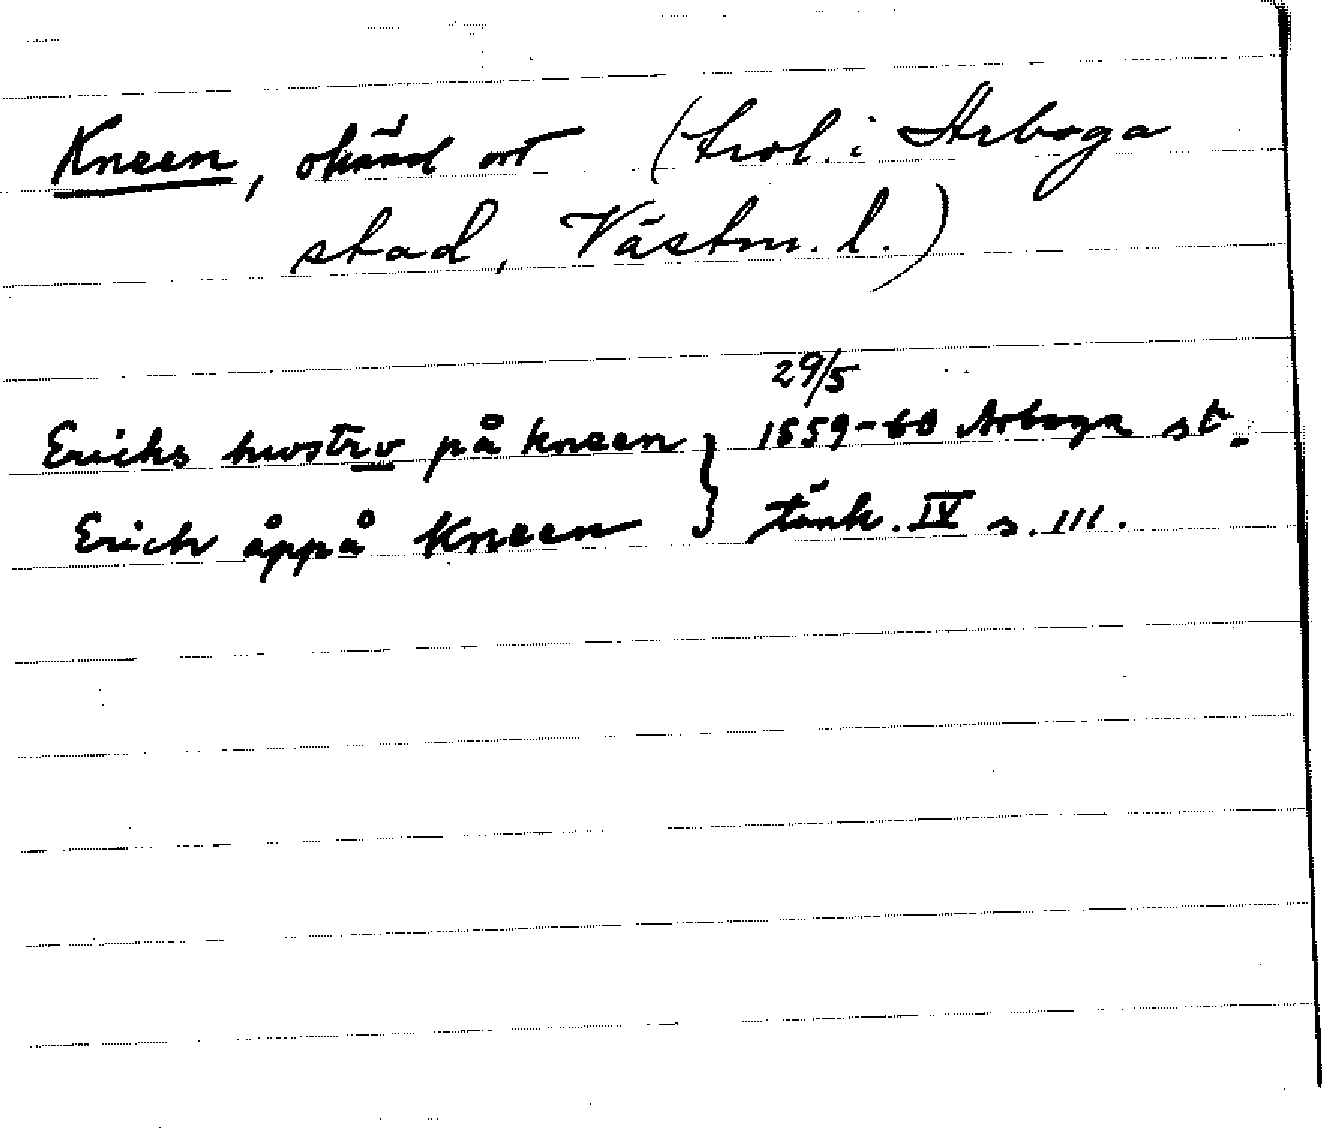 Kneen, okänd ort (trol. i Arboga
stad, Västm. l.)
29/5
Erichs hwstrv på kneen } 1659-60 Arboga st.
Erich åppå Kneen } tänk. IV s. 111.